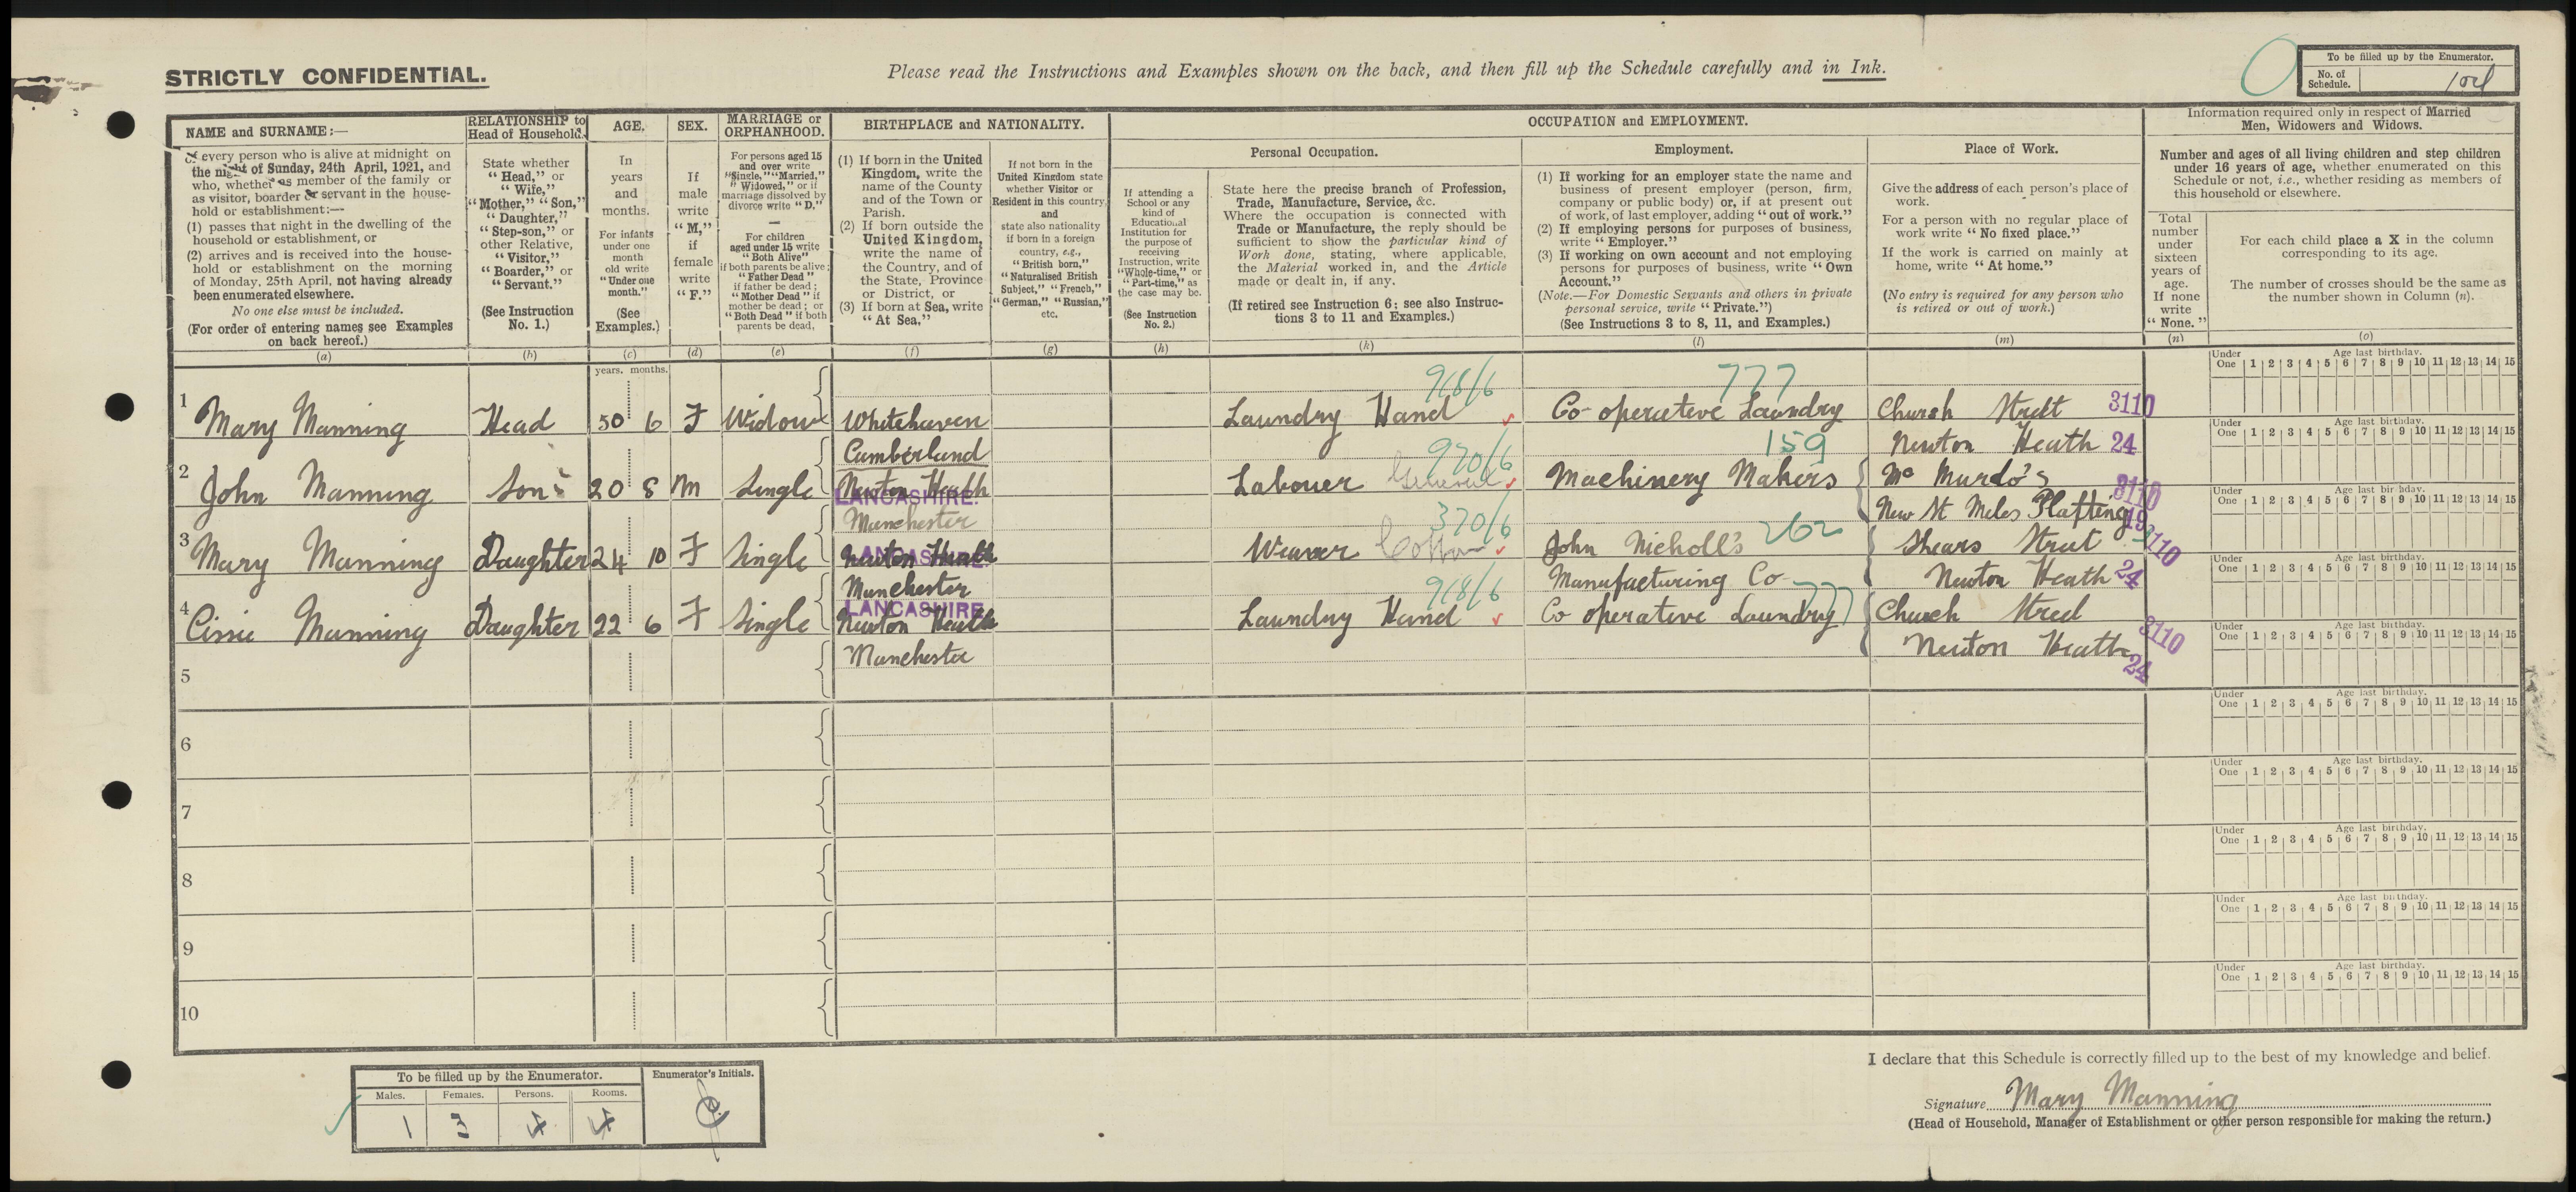 STRICTLY CONFIDENTIAL.
Please read the Instructions and Examples shown on the back, and then fill up the Schedule carefully and in Ink.
To be filled up by the Enumerator.
No. of Schedule.
NAME and SURNAME:—
of every person who is alive at midnight on
the night of Sunday, 24th April, 1921, and
who, whether as member of the family or
as visitor, boarder or servant in the house-
hold or establishment:—
(1) passes that night in the dwelling of the
household or establishment, or
(2) arrives and is received into the house-
hold or establishment on the morning
of Monday, 25th April, not having already
been enumerated elsewhere.
No one else must be included.
(For order of entering names see Examples
on back hereof.)
(a)
RELATIONSHIP to
Head of Household.
State whether
"Head," or
"Wife,"
"Mother," "Son,"
"Daughter,"
"Step-son," or
other Relative,
"Visitor,"
"Boarder," or
"Servant."
(See Instruction
No. 1.)
(b)
AGE.
In
years
and
months.
For infants
under one
month
old write
"Under one
month."
(See
Examples.)
(c)
SEX.
If
male
write
"M,"
if
female
write
"F."
(d)
MARRIAGE or
ORPHANHOOD.
For persons aged 15
and over write
"Single," "Married,"
"Widowed," or if
marriage dissolved by
divorce write "D."
For children
aged under 15 write
"Both Alive"
if both parents be alive;
"Father Dead"
if father be dead;
"Mother Dead" if
mother be dead; or
"Both Dead" if both
parents be dead,
(e)
BIRTHPLACE and NATIONALITY.
(1) If born in the United
Kingdom, write the
name of the County
and of the Town or
Parish.
(2) If born outside the
United Kingdom,
write the name of
the Country, and of
the State, Province
or District, or
(3) If born at Sea, write
"At Sea,"
(f)
If not born in the
United Kingdom state
whether Visitor or
Resident in this country,
and
state also nationality
if born in a foreign
country, e.g.,
"British born,"
"Naturalised British
Subject," "French,"
"German," "Russian,"
etc.
(g)
OCCUPATION and EMPLOYMENT.
Personal Occupation.
If attending a
School or any
kind of
Educational
Institution for
the purpose of
receiving
Instruction, write
"Whole-time," or
"Part-time," as
the case may be.
(See Instruction
No. 2.)
(h)
State here the precise branch of Profession,
Trade, Manufacture, Service, &c.
Where the occupation is connected with
Trade or Manufacture, the reply should be
sufficient to show the particular kind of
Work done, stating, where applicable,
the Material worked in, and the Article
made or dealt in, if any.
(If retired see Instruction 6; see also Instruc-
tions 3 to 11 and Examples.)
(k)
Employment.
(1) If working for an employer state the name and
business of present employer (person, firm,
company or public body) or, if at present out
of work, of last employer, adding "out of work."
(2) If employing persons for purposes of business,
write "Employer."
(3) If working on own account and not employing
persons for purposes of business, write "Own
Account."
(Note.—For Domestic Servants and others in private
personal service, write "Private.")
(See Instructions 3 to 8, 11, and Examples.)
(l)
Place of Work.
Give the address of each person's place of
work.
For a person with no regular place of
work write "No fixed place."
If the work is carried on mainly at
home, write "At home."
(No entry is required for any person who
is retired or out of work.)
(m)
Information required only in respect of Married
Men, Widowers and Widows.
Number and ages of all living children and step children
under 16 years of age, whether enumerated on this
Schedule or not, i.e., whether residing as members of
this household or elsewhere.
Total
number
under
sixteen
years of
age.
If none
write
"None."
(n)
For each child place a X in the column
corresponding to its age.
The number of crosses should be the same as
the number shown in Column (n).
(o)
years. months.
Under One
Age last birthday.
1 2 3 4 5 6 7 8 9 10 11 12 13 14 15
918/6 777
1 Mary Manning Head 50 6 F Widow Whitehaven Laundry Hand Co-operative Laundry Church Street 3110
Cumberland 970/6 159 Newton Heath 24
Under One
Age last birthday.
1 2 3 4 5 6 7 8 9 10 11 12 13 14 15
2 John Manning Son 20 8 M Single Newton Heath Labouer General Machinery Makers Mc Murdo's 3110
LANCASHIRE.
Manchester 370/6 262 New St Miles Platting 19
Under One
Age last birthday.
1 2 3 4 5 6 7 8 9 10 11 12 13 14 15
3 Mary Manning Daughter 24 10 F Single Newton Heath Weaver Cotton John Nicholl's Shears Street 3110
LANCASHIRE
Manchester 918/6 Manufacturing Co 777 Newton Heath 24
Under One
Age last birthday.
1 2 3 4 5 6 7 8 9 10 11 12 13 14 15
LANCASHIRE
4 Cissie Manning Daughter 22 6 F Single Newton Heath Laundry Hand Co operative Laundry Church Street 3110
Manchester Newton Heath 24
Under One
Age last birthday.
1 2 3 4 5 6 7 8 9 10 11 12 13 14 15
5
Under One
Age last birthday.
1 2 3 4 5 6 7 8 9 10 11 12 13 14 15
6
Under One
Age last birthday.
1 2 3 4 5 6 7 8 9 10 11 12 13 14 15
7
Under One
Age last birthday.
1 2 3 4 5 6 7 8 9 10 11 12 13 14 15
8
Under One
Age last birthday.
1 2 3 4 5 6 7 8 9 10 11 12 13 14 15
9
Under One
Age last birthday.
1 2 3 4 5 6 7 8 9 10 11 12 13 14 15
10
Under One
Age last birthday.
1 2 3 4 5 6 7 8 9 10 11 12 13 14 15
To be filled up by the Enumerator.
Enumerator's Initials.
Males. Females. Persons. Rooms.
1 3 4 4
I declare that this Schedule is correctly filled up to the best of my knowledge and belief.
Signature Mary Manning
(Head of Household, Manager of Establishment or other person responsible for making the return.)